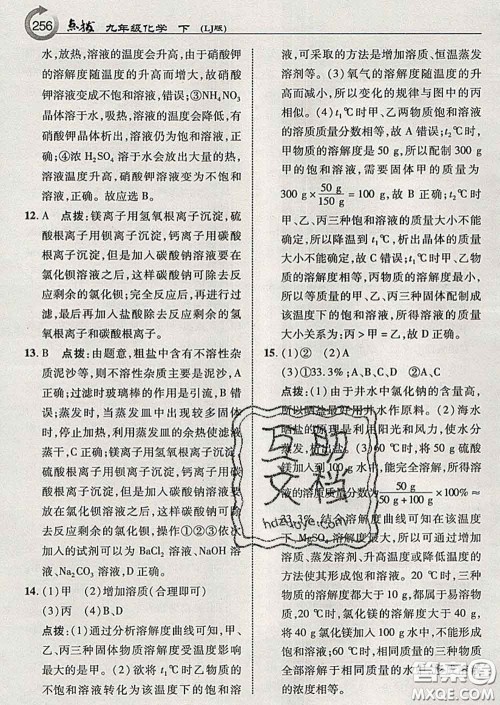 256 点拨 九年级化学 下 (LJ版)
水,放热,溶液的温度会升高,由于硝酸钾
的溶解度随温度的升高而增大,故硝酸
钾溶液变成不饱和溶液,错误;③NH₄NO₃
晶体溶于水,吸热,溶液的温度会降低,有
硝酸钾晶体析出,溶液仍为饱和溶液,正
确;④浓 H₂SO₄ 溶于水会放出大量的热,
溶液温度升高,硝酸钾溶液变为不饱和
溶液,正确。故应选 B。
12. A 点拨:镁离子用氢氧根离子沉淀,硫
酸根离子用钡离子沉淀,钙离子用碳酸
根离子沉淀,但是加入碳酸钠溶液要在
加入氯化钡溶液之后,这样碳酸钠可除去反
应剩余的氯化钡;完全反应后,再进行过
滤,最后加入盐酸除去反应剩余的氢
氧根离子和碳酸根离子。
13. B 点拨:由题意,粗盐中含有不溶性杂
质泥沙等,则不溶性杂质可以过滤除去,
A 正确;过滤时玻璃棒的作用是引流,B
错误;蒸发时,当蒸发皿中出现较多固体
时,停止加热,利用蒸发皿的余热使滤液
蒸干,C 正确;因为碳酸钠溶液要在加入
氯化钡溶液之后,这样碳酸钠可除去
反应剩余的氯化钡,操作①②③依次
加入的试剂可以为 BaCl₂ 溶液、NaOH 溶
液、Na₂CO₃ 溶液,D 正确。
14. (1)甲 (2)增加溶质(合理即可)
(3)丙 (4)B、D
点拨:(1)通过分析溶解度曲线可知,甲、
乙、丙三种物质溶解度受温度影响
最大的是甲。(2)欲将 t₁℃时乙物质的
不饱和溶液转化为该温度下的饱和溶
液,可采取的方法是增加溶质、恒温蒸发
溶剂等。(3)氧气的溶解度随温度的升
高而减小,所以变化的规律与图中的丙
相似。(4)t₁℃时甲、乙两物质饱和溶液的
溶质质量分数相等,故 A 错误;t₂℃时,
甲物质的溶解度是 50 g,所以配制 300 g
甲的饱和溶液,需要固体甲的质量为
300 g×50 g/150 g=100 g,故 B 正确;t₂℃时,
甲、乙、丙三种饱和溶液的质量大小不能
确定,所以降温到 t₁℃时,析出固体的质量
大小不能确定,故 C 错误;t₂℃时,用等
质量的甲、乙、丙三种固体配制成
该温度下的饱和溶液,所得溶液的质
量大小关系为:丙>乙>甲,故 D 正确。
15. (1)①② (2)A
(3)①33.3% ②A、B、C、D
点拨:(1)由于井水中氯化钠的含量高,
所以晒盐最好用井水作原料。(2)海水
晒盐的原理是利用阳光和风力,使水分
蒸发,析出盐。(3)60℃时,将 50 g 硫酸
镁加入到 100 g 水中,能完全溶解,所得溶
液的溶质质量分数为50 g/50 g+100 g×100%≈
33.3%。结合溶解度曲线可知在该温度
下,MgSO₄ 溶解度最大,所以可通过增加
溶质、蒸发溶剂、升高温度或降低温度的
方法得到饱和溶液。20℃时,三种
物质的溶解度都大于 10 g,都属于易溶
物质。20℃时,硫酸镁的溶解度小于 40
g,氯化镁的溶解度大于 40 g,将
三种固体溶于相同质量的水
的浓度相等。
互助文档
hdzuoye.com
答案圈
MXQE.COM